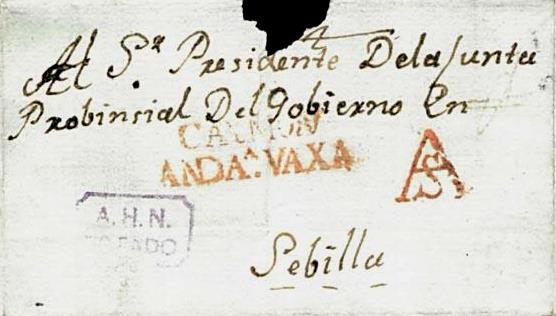 Al S.r Presidente Dela Junta
Probinsial Del Gobierno En
ANDA.A VAXA
AS
A. H. N.
Sebilla